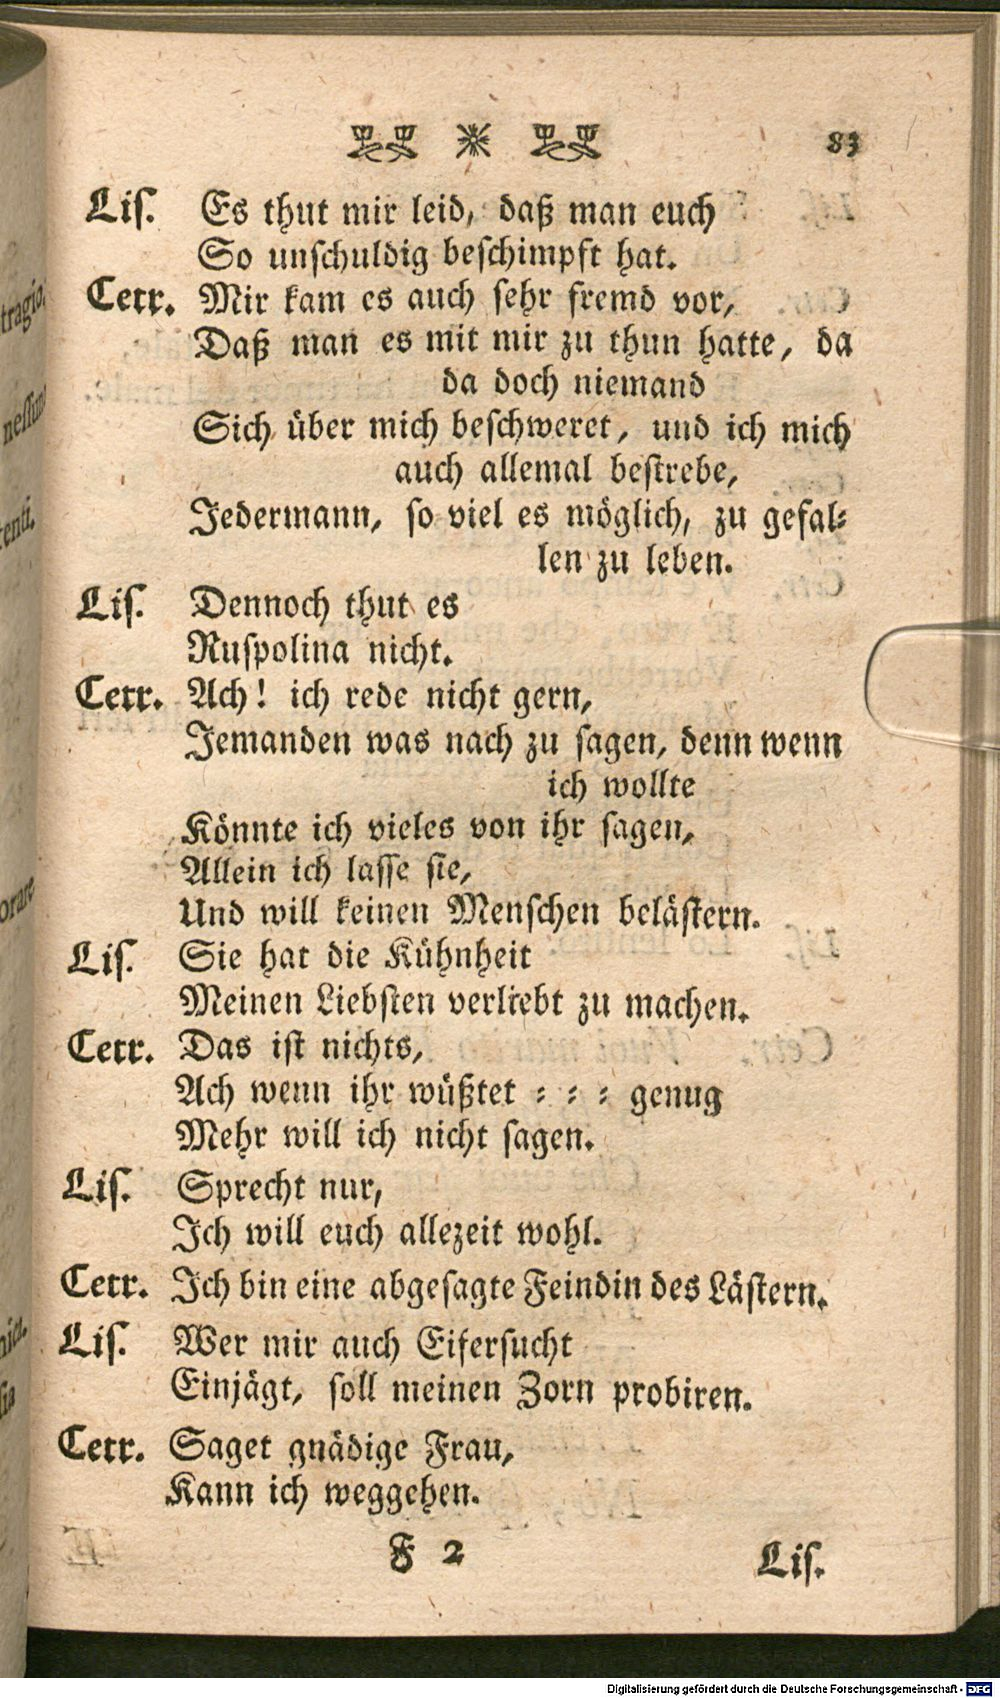 83
Lis. Es thut mir leid, daß man euch
So unschuldig beschimpft hat.
Cetr. Mir kam es auch sehr fremd vor,
Daß man es mit mir zu thun hatte, da
da doch niemand
Sich über mich beschweret, und ich mich
auch allemal bestrebe,
Jedermann, so viel es möglich, zu gefal-
len zu leben.
Lis. Dennoch thut es
Ruspolina nicht.
Cetr. Ach! ich rede nicht gern,
Jemanden was nach zu sagen, denn wenn
ich wollte
Könnte ich vieles von ihr sagen,
Allein ich lasse sie,
Und will keinen Menschen belästern.
Lis. Sie hat die Kühnheit
Meinen Liebsten verliebt zu machen.
Cetr. Das ist nichts,
Ach wenn ihr wüßtet = = = genug
Mehr will ich nicht sagen.
Lis. Sprecht nur,
Ich will euch allezeit wohl.
Cetr. Ich bin eine abgesagte Feindin des Lästern.
Lis. Wer mir auch Eifersucht
Einjägt, soll meinen Zorn probiren.
Cetr. Saget gnädige Frau,
Kann ich weggehen.
F 2
Lis.
tragio.
nessun
tenti.
orare
Digitalisierung gefördert durch die Deutsche Forschungsgemeinschaft - DFG